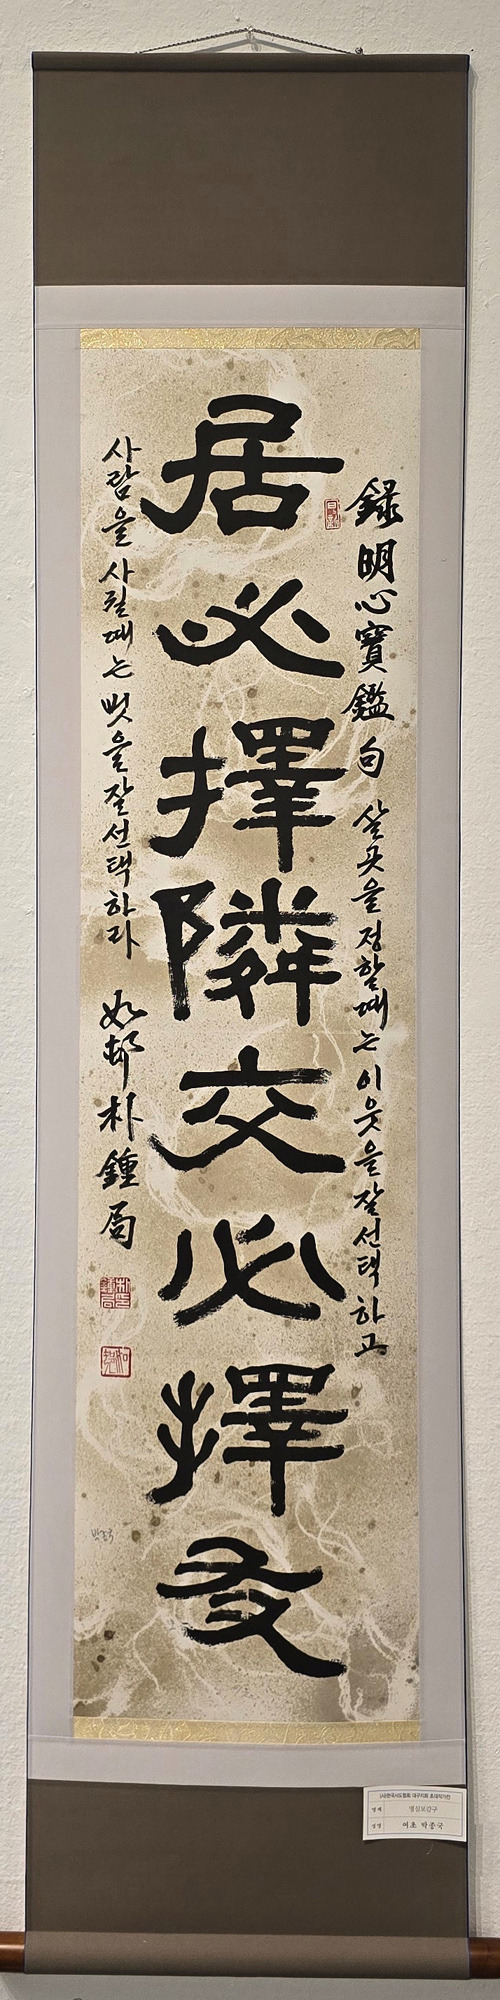 錄明心寶鑑句 살곳을 정할때는 이웃을 잘 선택하고
居必擇隣交必擇友
사람을 사귈때는 벗을 잘 선택하라 如邨 朴鍾局
박종국
(사)한국서도협회 대구지회 초대작가전
명제 명심보감구
성명 박종국